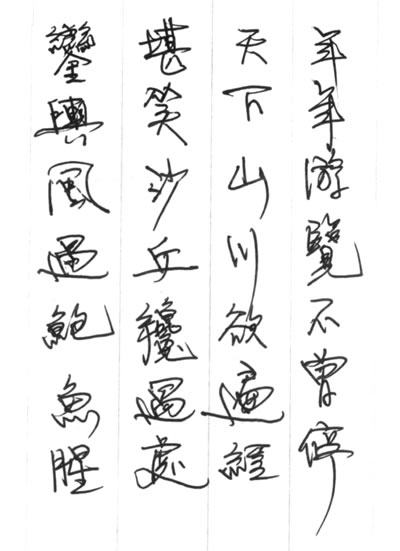 年年游覽不曾停
天下山川欲遍經
堪笑沙丘纔過處
鑾輿風過鮑魚腥